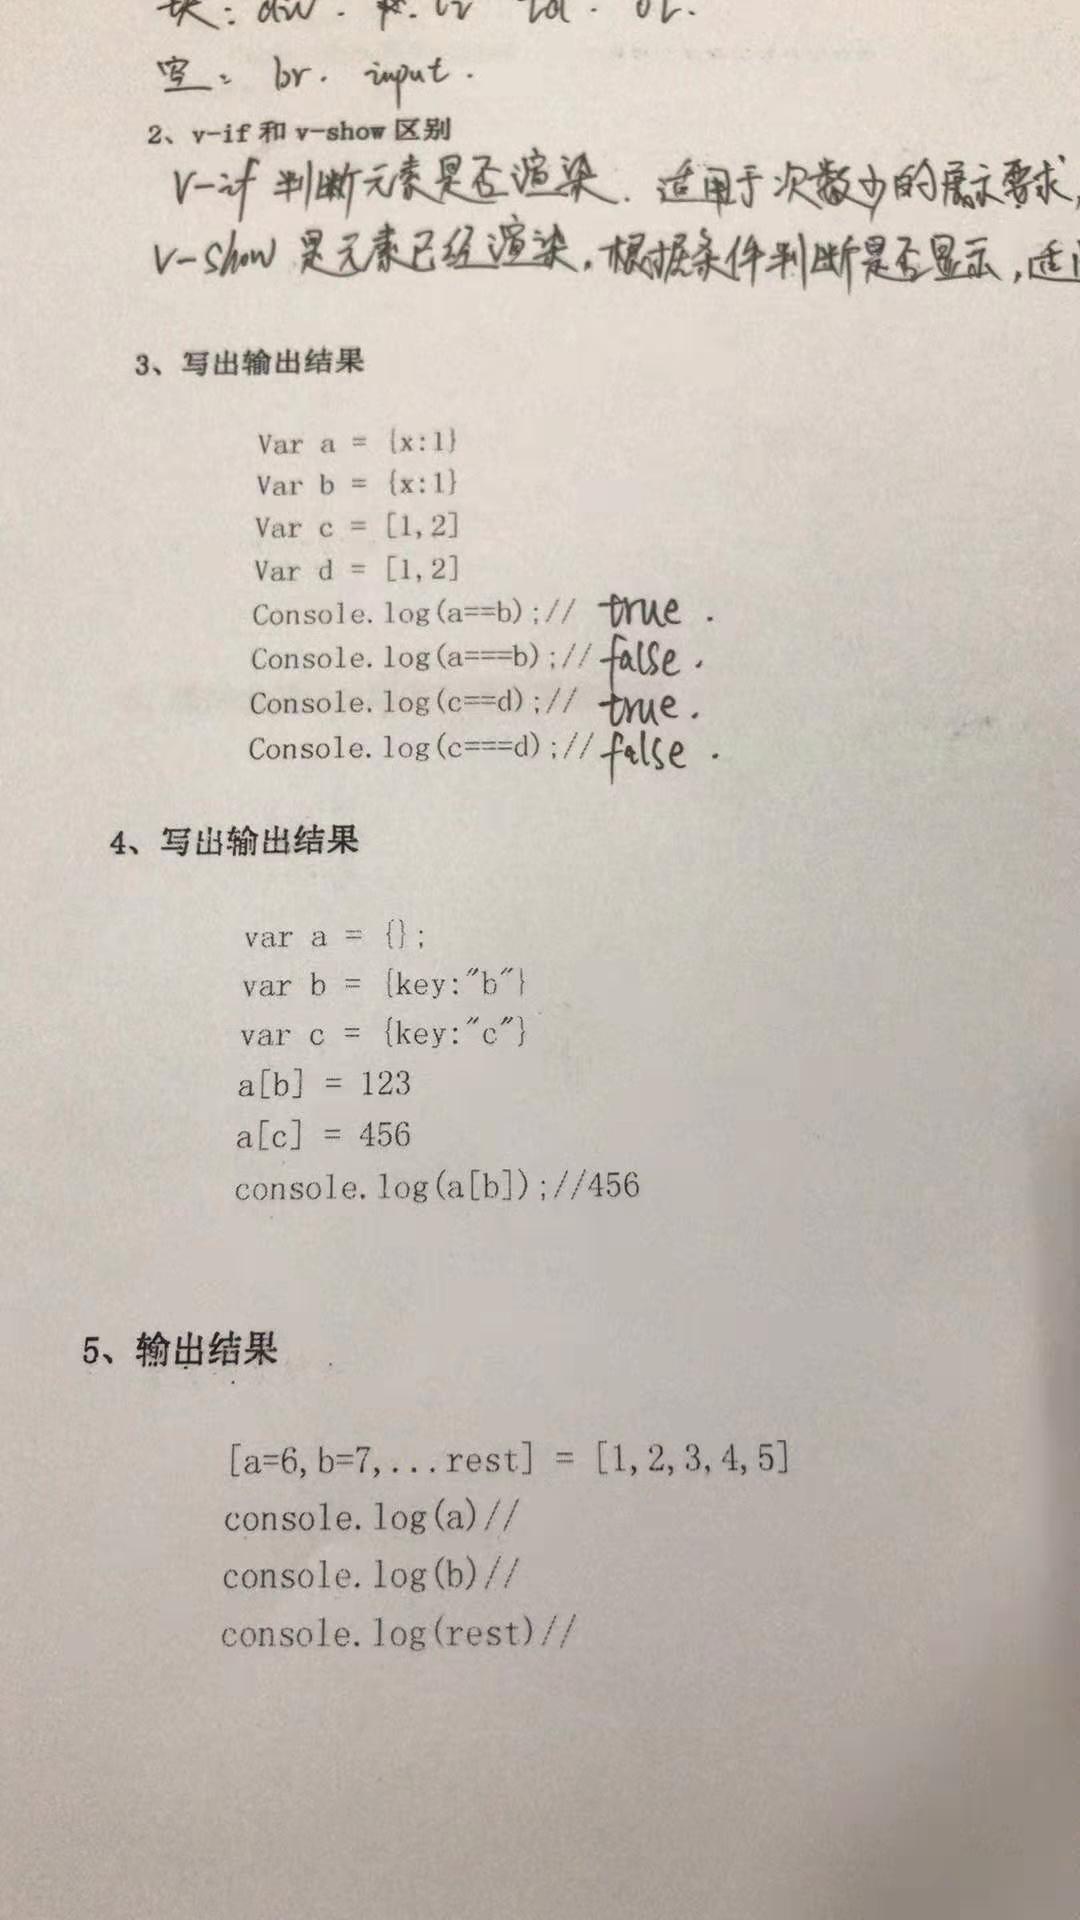 块: div. li td. ol.
空: br. input.
2、v-if 和 v-show 区别
v-if 判断元素是否渲染. 适用于次数少的展示要求,
v-show 是元素已经渲染,根据条件判断是否显示,适
3、写出输出结果
Var a = {x:1}
Var b = {x:1}
Var c = [1,2]
Var d = [1,2]
Console.log(a==b);// true.
Console.log(a===b);// false.
Console.log(c==d);// true.
Console.log(c===d);// false.
4、写出输出结果
var a = {};
var b = {key:"b"}
var c = {key:"c"}
a[b] = 123
a[c] = 456
console.log(a[b]);//456
5、输出结果
[a=6,b=7,...rest] = [1,2,3,4,5]
console.log(a)//
console.log(b)//
console.log(rest)//